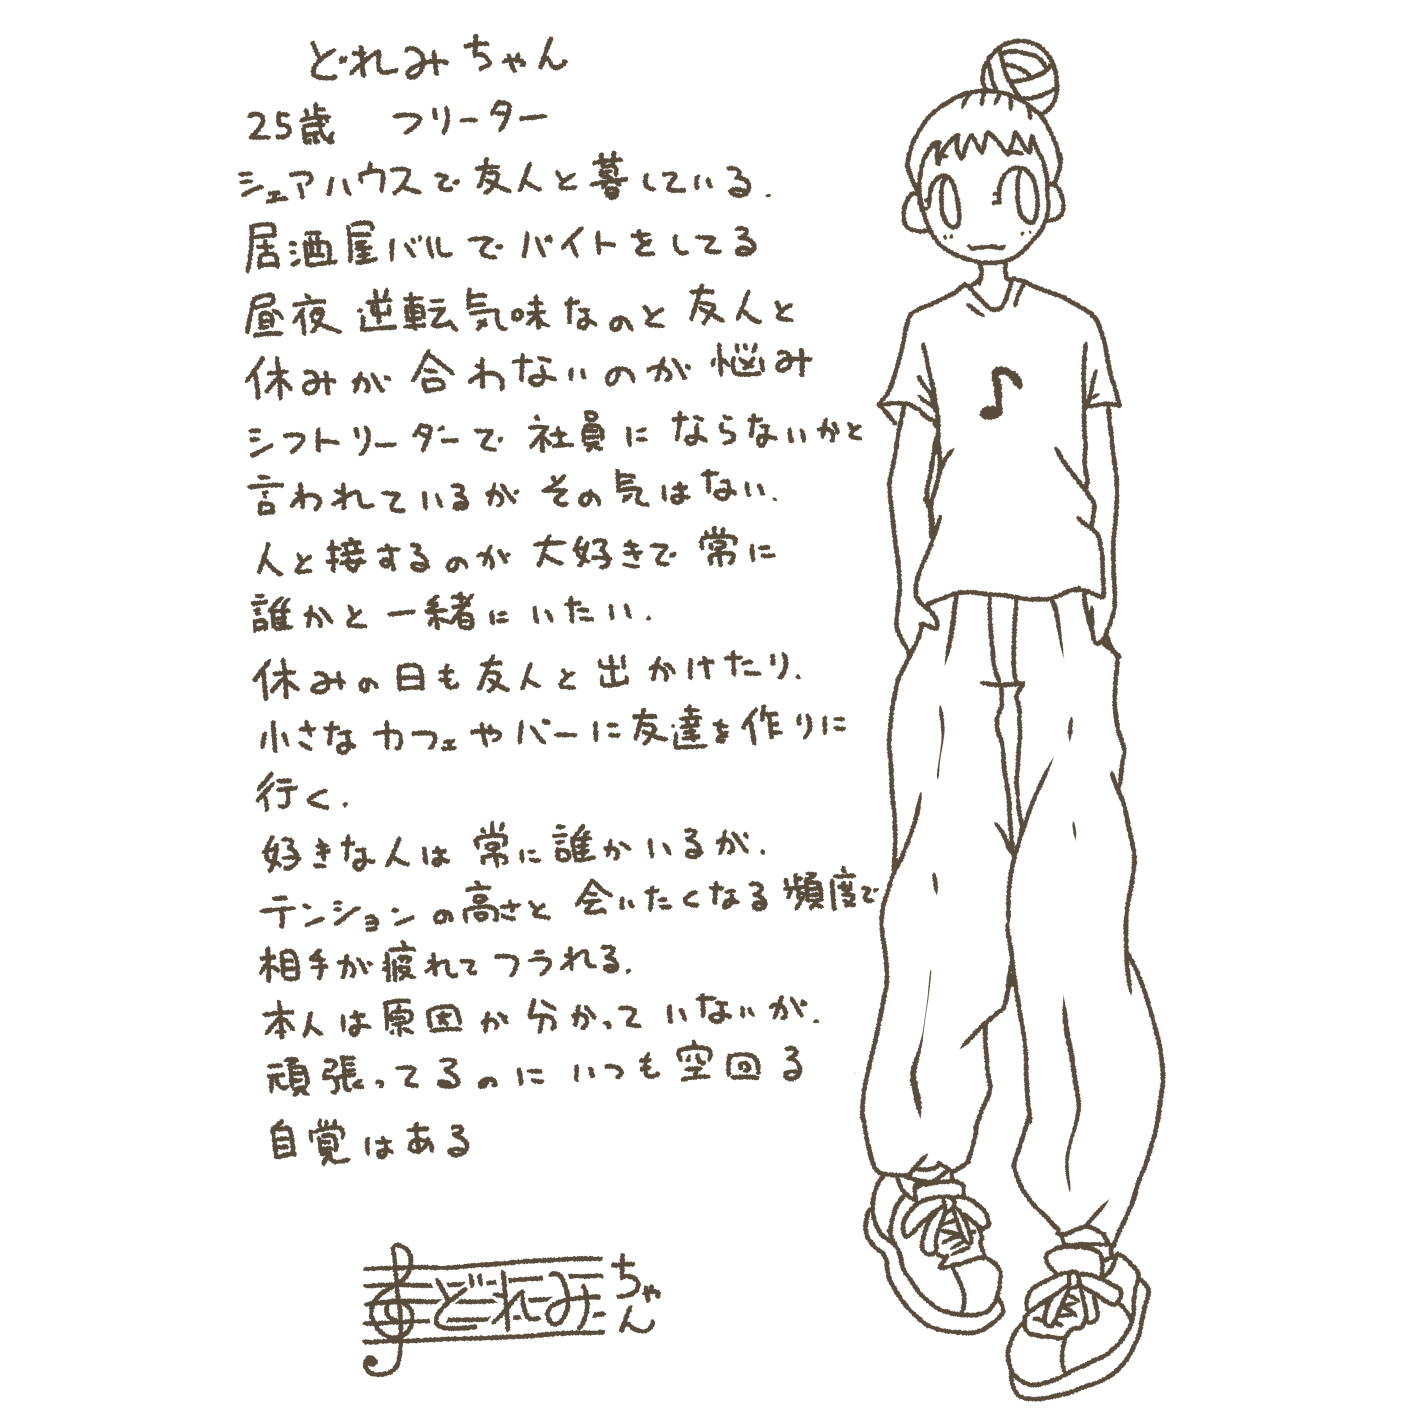 どれみちゃん
25歳 フリーター
シェアハウスで友人と暮している.
居酒屋バルでバイトをしてる
昼夜逆転気味なのと友人と
休みが合わないのが悩み
シフトリーダーで社員にならないかと
言われているがその気はない.
人と接するのが大好きで常に
誰かと一緒にいたい.
休みの日も友人と出かけたり.
小さなカフェやバーに友達を作りに
行く.
好きな人は常に誰かいるが.
テンションの高さと会いたくなる頻度で
相手が疲れてフラれる.
本人は原因が分かっていないが.
頑張ってるのにいつも空回る
自覚はある
どれみちゃん